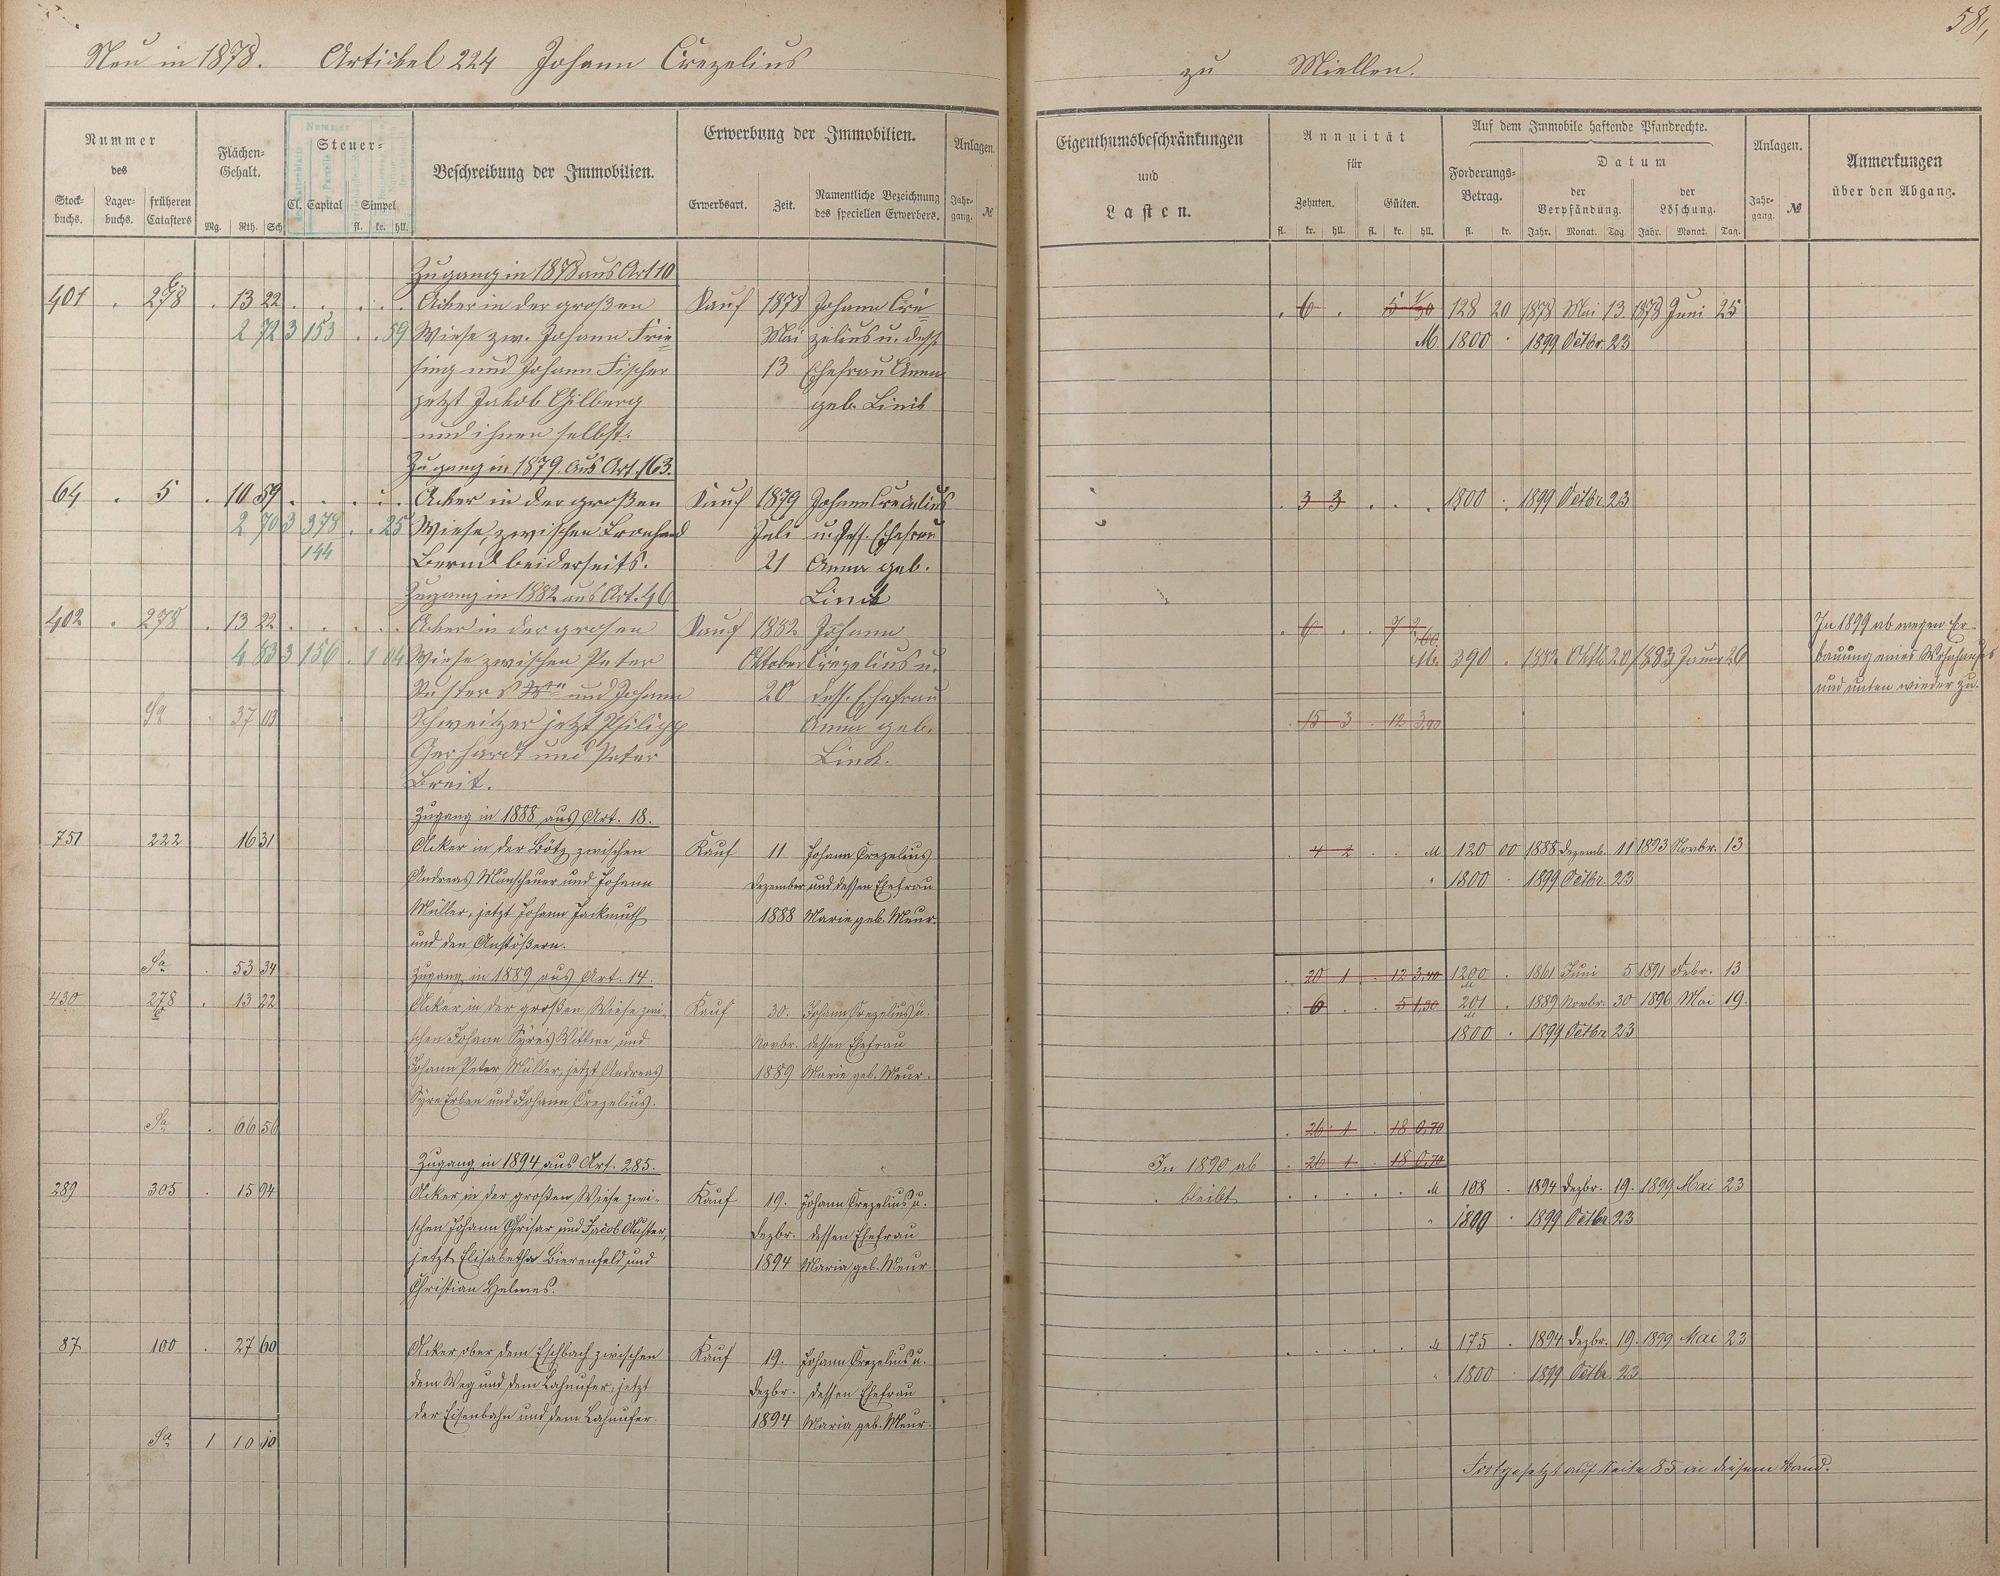 58,
Neu in 1878. Artickel 224 Johann Crezelius zu Miellen.
Nummer des
Stock-buchs. Lager-buchs. früheren Catasters
Flächen-Gehalt.
Mg. Rth. Sch
Steuer-
Cl. Capital Simpel
fl. kr. hll.
Beschreibung der Immobilien.
Erwerbung der Immobilien.
Erwerbsart. Zeit. Namentliche Bezeichnung des speciellen Erwerbers.
Anlagen.
Jahr-gang. №
Eigenthumsbeschränkungen
und
Lasten.
Annuität
für
Zehnten. Gülten.
fl. kr. hll. fl. kr. hll.
Auf dem Immobile haftende Pfandrechte.
Forderungs-Betrag. Datum
der Verpfändung. der Löschung.
fl. kr. Jahr. Monat. Tag Jahr. Monat. Tag.
Anlagen.
Jahr-gang. №
Anmerkungen
über den Abgang.
Zugang in 1878 aus Art 10
401 . 278 . 13 22 Acker in der großen Kauf 1878 Johann Cre-
2 72 3 153 . . 59 Wiese zw. Johann Frie- Mai zelius u. dess.
sing und Johann Fischer 13 Ehefrau Anna
jetzt Jakob Gilberg geb. Link
und ihnen selbst.
6 128 20 1878 Mai 13 1878 Juni 25
M. 1800 . 1899 Octbr. 23
Zugang in 1879 aus Art. 163.
64 . 5 . 10 59 Acker in der großen Kauf 1879 Johann Crezelius
2 70 3 378 . . 25 Wiese, zwischen Juli u. dess. Ehefrau
144 Bernd beiderseits. 21 Anna geb.
Link
3 3 1800 . 1899 Octbr. 23
Zugang in 1882 aus Art. 46
402 . 278 . 13 22 Acker in der grosen Kauf 1882 Johann
4 83 3 156 . 1 04 Wiese zwischen Peter Oktober Crezelius u.
und Johann 20 dess. Ehefrau
Sa . 37 03 Schweitzer jetzt Philipp Anna geb.
Gerhardt und Peter Link.
Breit.
6
M. 390 . 1882 Oktb 20 1883 Januar 26
15 3 . 12 3,40
In 1899 ab wegen Er-
bauung eines Wohnhauses
und unten wieder zu.
Zugang in 1888 aus Art. 18.
751 222 16 31 Acker in der Bötz zwischen Kauf 11 Johann Crezelius
Andreas Munscheuer und Johann Dezember und dessen Ehefrau
Müller, jetzt Johann Jackmuth 1888 Marie geb. Meur.
und den Anstößern.
4 2 M 120 00 1888 Dezemb. 11 1893 Novbr. 13
" 1800 . 1899 Octbr. 23
Sa . 53 34 Zugang in 1889 aus Art. 14.
430 278 . 13 22 Acker in der großen Wiese zwi- Kauf 30. Johann Crezelius u.
schen Johann Syre's Wittwe und Novbr. dessen Ehefrau
Johann Peter Müller, jetzt Andreas 1889 Marie geb. Meur.
Syre Erben und Johann Crezelius.
20 1 . 12 3,40 1200 . 1861 Juni 5 1891 Febr. 13
6 . . 5 1,30 201 . 1889 Novbr. 30 1896 Mai 19.
1800 . 1899 Octbr 23
Sa . 66 56
26 1 . 18 0,70
Zugang in 1894 aus Art. 285.
In 1890 ab . 26 1 . 18 0,70
bleibt
289 305 . 15 94 Acker in der großen Wiese zwi- Kauf 19. Johann Crezelius u.
schen Johann Chrisar und Jacob Auster, Dezbr. dessen Ehefrau
jetzt Elisabetha Bierenfeld und 1894 Maria geb. Meur
Christian Helmes.
M 108 . 1894 Dezbr. 19. 1899 Mai 23
" 1800 . 1899 Octbr 23
87 100 . 27 60 Acker ober dem Eschbach zwischen Kauf 19. Johann Crezelius u.
dem Weg und dem Lahnufer, jetzt Dezbr. dessen Ehefrau
der Eisenbahn und dem Lahnufer. 1894 Maria geb. Meur.
M 175 . 1894 Dezbr. 19. 1899 Mai 23
" 1800 . 1899 Octbr 23
Sa 1 10 10
Fortgesetzt auf Seite 85 in diesem Band.